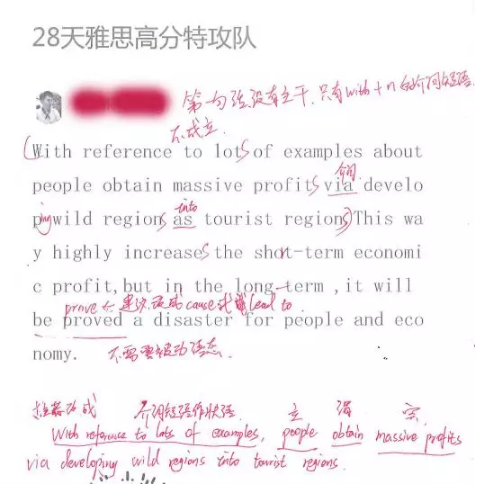 28天雅思高分特攻队
第一句话没有主干,只有with+n的介词短语
不成立.
(With reference to lots of examples about
介词
people obtain massive profits via develo
into
ping wild regions as tourist regions)This wa
y highly increases the short-term economi
c profit,but in the long-term ,it will
prove ← 建议改成cause或者lead to
be proved a disaster for people and eco
nomy. 不需要被动语态.
推荐改成 介词短语作状语 主 谓 宾
With reference to lots of examples, people obtain massive profits
via developing wild regions into tourist regions.